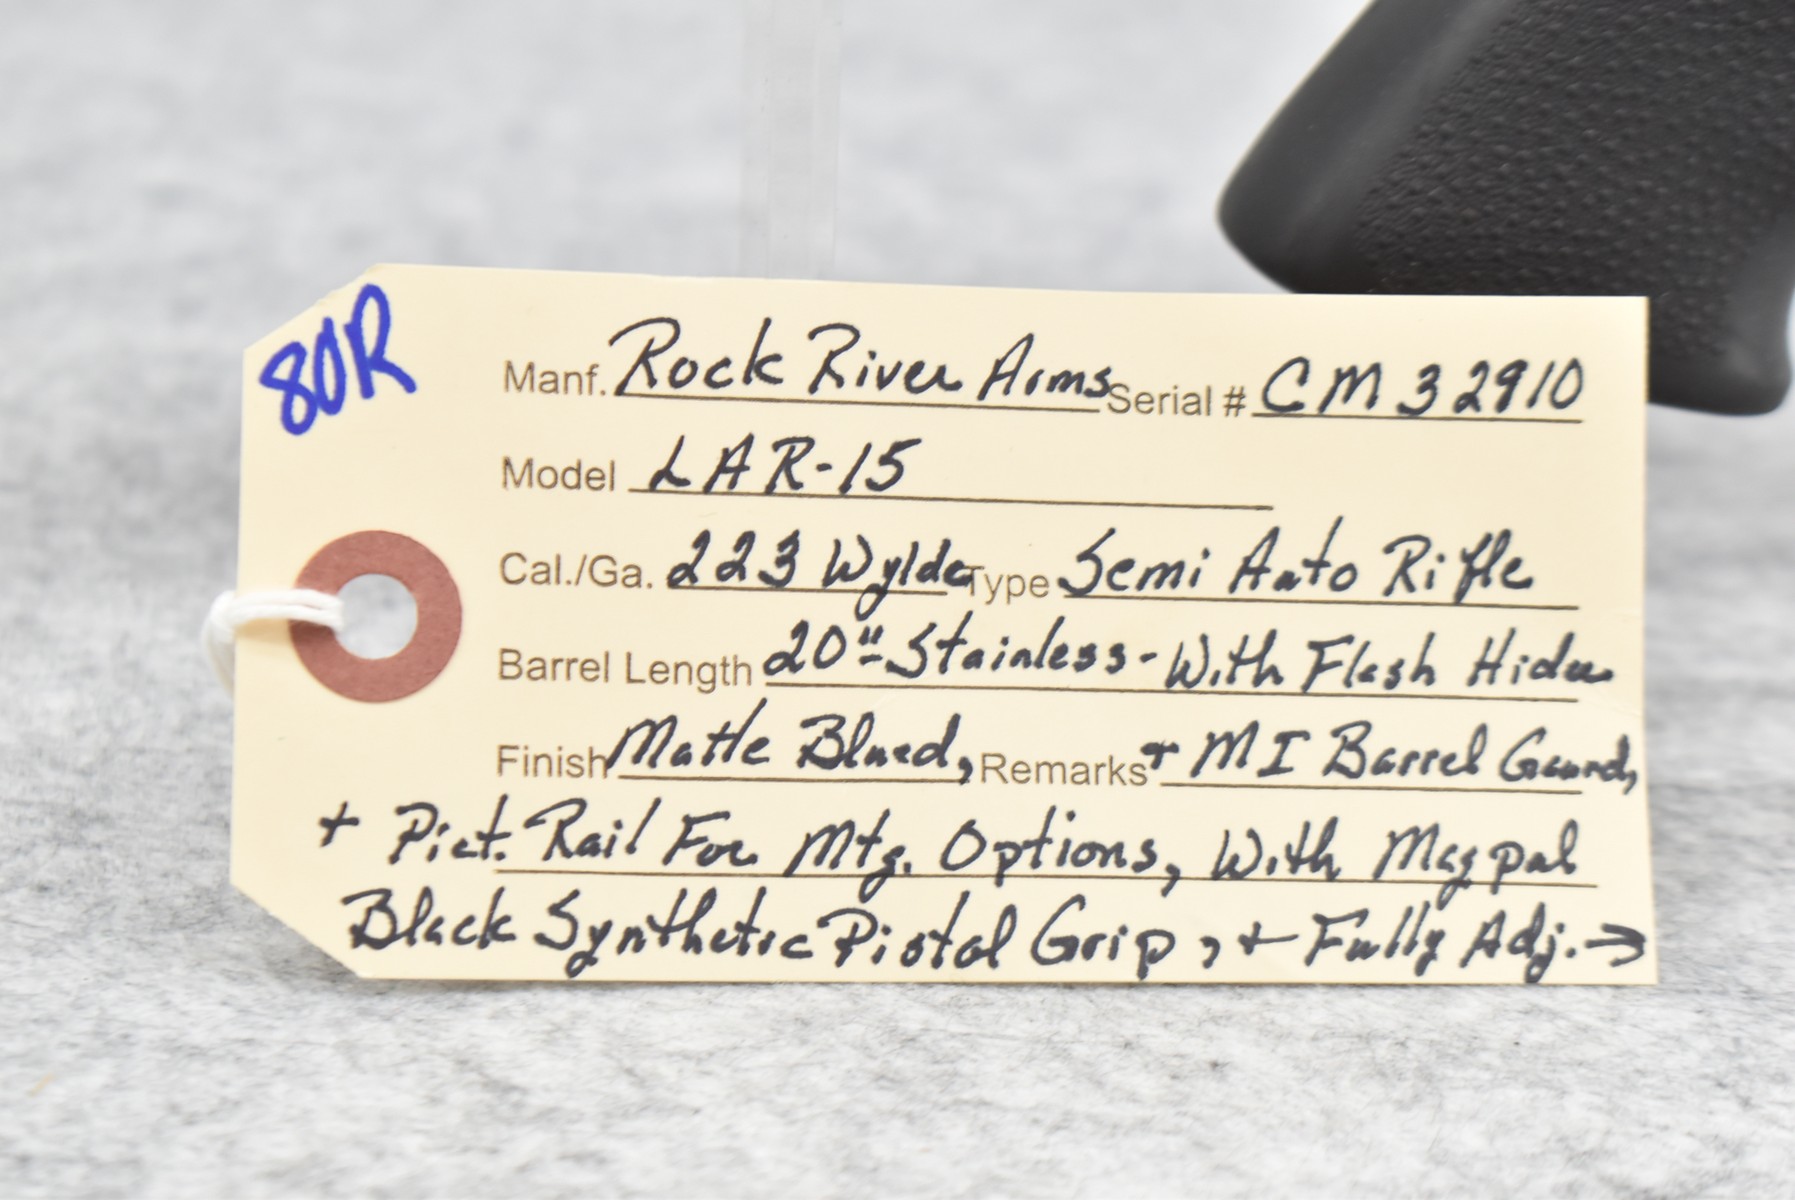 80R
Manf. Rock River Arms Serial # CM32910
Model LAR-15
Cal./Ga. 223 Wylde Type Semi Auto Rifle
Barrel Length 20"-Stainless-With Flash Hider
Finish Matte Blued, Remarks + MI Barrel Guard,
+ Pict. Rail For Mtg. Options, With Magpul
Black Synthetic Pistol Grip, + Fully Adj. →